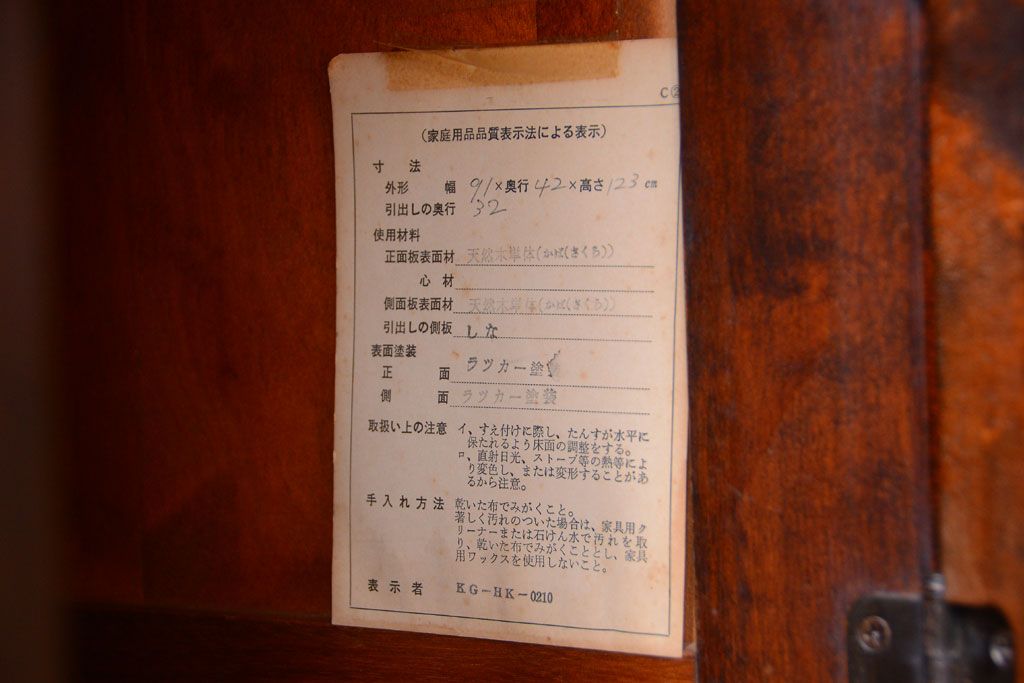 C②
(家庭用品品質表示法による表示)
寸法
外形 幅 91×奥行 42×高さ 123 cm
引出しの奥行 32
使用材料
正面板表面材 天然木単体(かば(さくら))
心材
側面板表面材 天然木単体(かば(さくら))
引出しの側板 しな
表面塗装
正面 ラツカー塗
側面 ラツカー塗装
取扱い上の注意 イ、すえ付けに際し、たんすが水平に
保たれるよう床面の調整をする。
ロ、直射日光、ストーブ等の熱等によ
り変色し、または変形することがあ
るから注意。
手入れ方法 乾いた布でみがくこと。
著しく汚れのついた場合は、家具用ク
リーナーまたは石けん水で汚れを取
り、乾いた布でみがくこととし、家具
用ワックスを使用しないこと。
表示者 KG-HK-0210